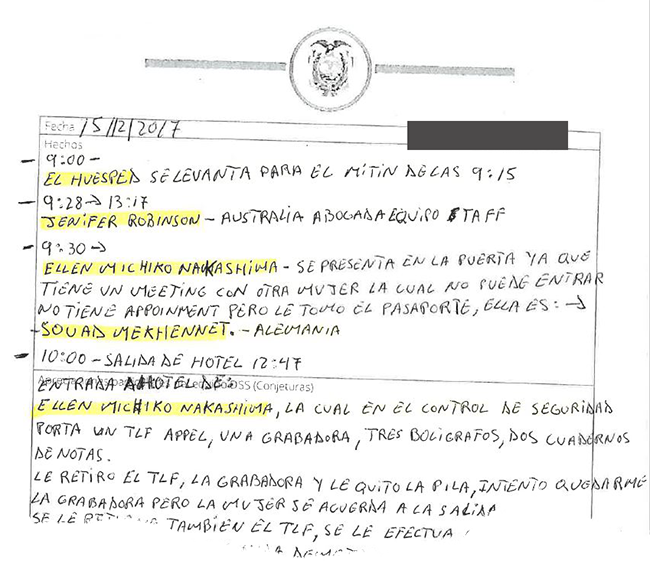 Fecha 15/12/2017
Hechos
- 9:00 -
EL HUESPED SE LEVANTA PARA EL MITIN DE LAS 9:15
- 9:28 → 13:17
JENIFER ROBINSON - AUSTRALIA ABOGADA EQUIPO STAFF
- 9:30 →
ELLEN MICHIKO NAKASHIMA - SE PRESENTA EN LA PUERTA YA QUE
TIENE UN MEETING CON OTRA MUJER LA CUAL NO PUEDE ENTRAR
NO TIENE APPOINMENT PERO LE TOMO EL PASAPORTE, ELLA ES: →
- SOUAD MEKHENNET. - ALEMANIA
- 10:00 - SALIDA DE HOTEL 12:47
ENTRADA A HOTEL DE:
OSS (Conjeturas)
ELLEN MICHIKO NAKASHIMA, LA CUAL EN EL CONTROL DE SEGURIDAD
PORTA UN TLF APPEL, UNA GRABADORA, TRES BOLIGRAFOS, DOS CUADERNOS
DE NOTAS.
LE RETIRO EL TLF, LA GRABADORA Y LE QUITO LA PILA, INTENTO QUEDARME
LA GRABADORA PERO LA MUJER SE ACUERDA A LA SALIDA
SE LE TAMBIÉN EL TLF, SE LE EFECTUA